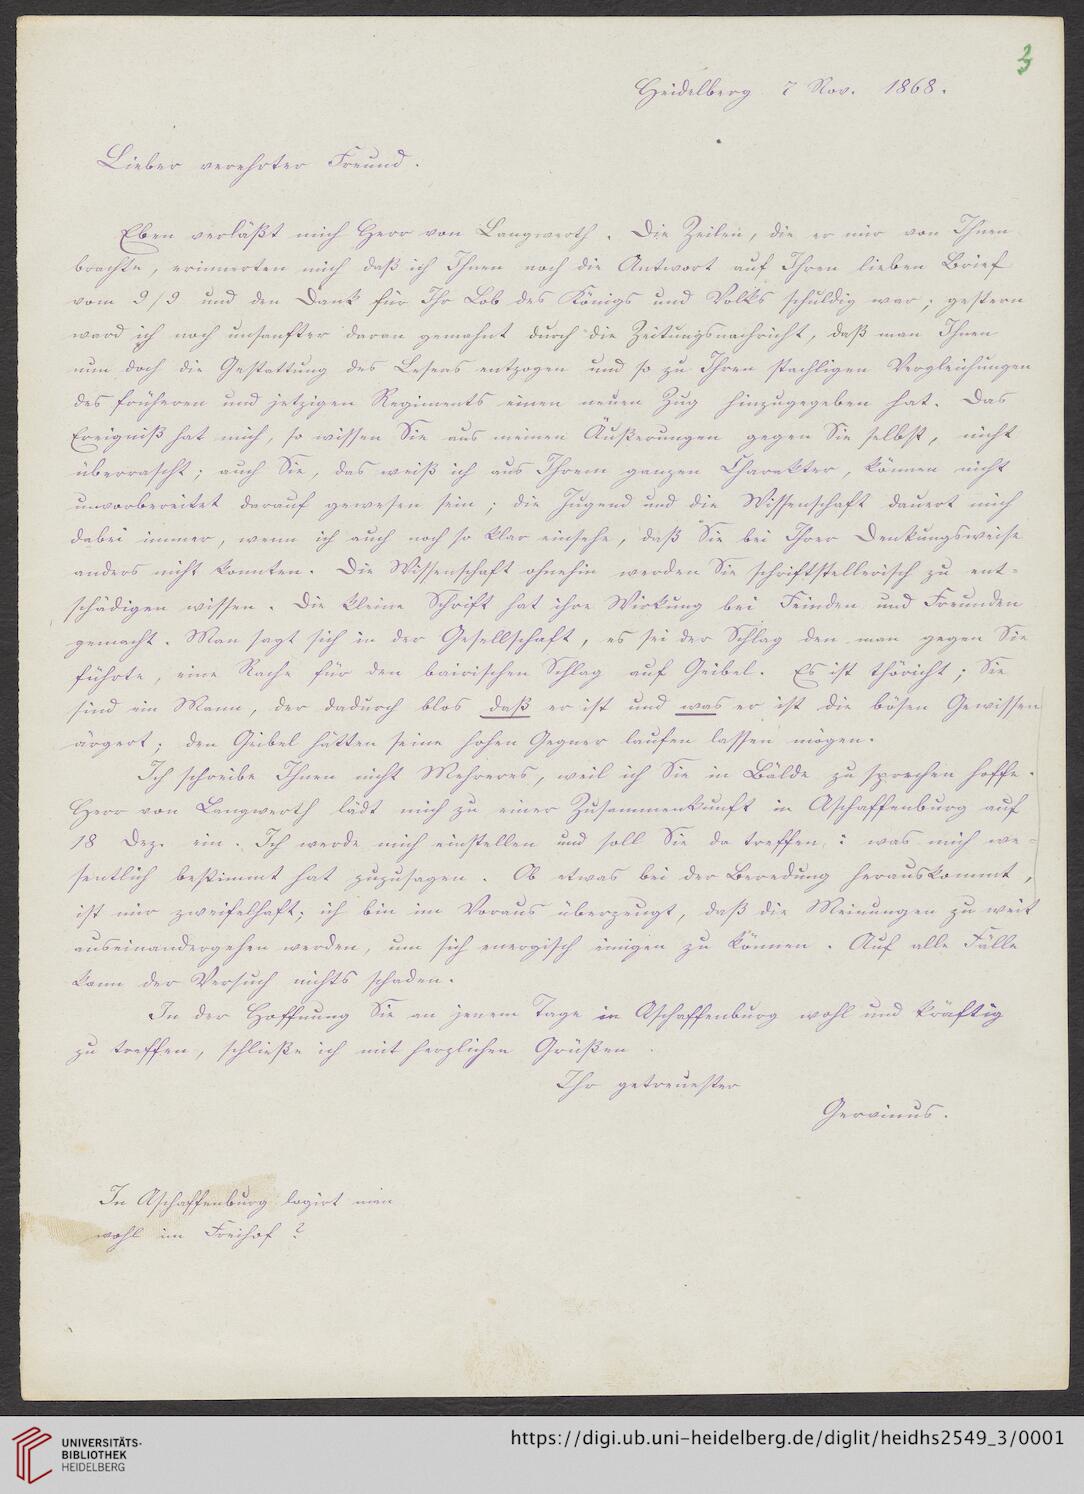 3
Heidelberg 7 Nov. 1868.
Lieber verehrter Freund.
Eben verläßt mich Herr von Langwerth. Die Zeilen, die er mir von Ihnen
brachte, erinnerten mich daß ich Ihnen noch die Antwort auf Ihren lieben Brief
vom 9/9 und den Dank für Ihr Lob des Königs und Volks schuldig war; gestern
ward ich noch unsanfter daran gemahnt durch die Zeitungsnachricht, daß man Ihnen
nun doch die Gestattung des Lesens entzogen und so zu Ihren stachligen Vergleichungen
des früheren und jetzigen Regiments einen neuen Zug hinzugegeben hat. Das
Ereigniß hat mich, so wissen Sie aus meinen Äußerungen gegen Sie selbst, nicht
überrascht; auch Sie, das weiß ich aus Ihrem ganzen Charakter, können nicht
unvorbereitet darauf gewesen sein; die Jugend und die Wissenschaft dauert mich
dabei immer, wenn ich auch noch so klar einsehe, daß Sie bei Ihrer Denkungsweise
anders nicht konnten. Die Wissenschaft ohnehin werden Sie schriftstellerisch zu ent-
schädigen wissen. Die kleine Schrift hat ihre Wirkung bei Feinden und Freunden
gemacht. Man sagt sich in der Gesellschaft, es sei der Schlag den man gegen Sie
führte, eine Rache für den bairischen Schlag auf Geibel. Es ist thöricht; Sie
sind ein Mann, der dadurch blos daß er ist und was er ist die bösen Gewissen
ärgert; den Geibel hätten seine hohen Gegner laufen lassen mögen.
Ich schreibe Ihnen nicht Mehreres, weil ich Sie in Bälde zu sprechen hoffe.
Herr von Langwerth lädt mich zu einer Zusammenkunft in Aschaffenburg auf
18 Dez. ein. Ich werde mich einstellen und soll Sie da treffen: was mich we-
sentlich bestimmt hat zuzusagen. Ob etwas bei der Beredung herauskommt,
ist mir zweifelhaft; ich bin im Voraus überzeugt, daß die Meinungen zu weit
auseinandergehen werden, um sich energisch einigen zu können. Auf alle Fälle
kann der Versuch nichts schaden.
In der Hoffnung Sie an jenem Tage in Aschaffenburg wohl und kräftig
zu treffen, schließe ich mit herzlichen Grüßen.
Ihr getreuester
Gervinus.
In Aschaffenburg logirt man
wohl im Freihof?
UNIVERSITÄTS-
BIBLIOTHEK
HEIDELBERG
https://digi.ub.uni-heidelberg.de/diglit/heidhs2549_3/0001